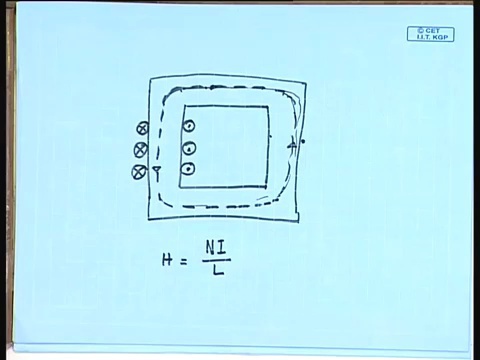 © CET
I.I.T. KGP
H = NI
L